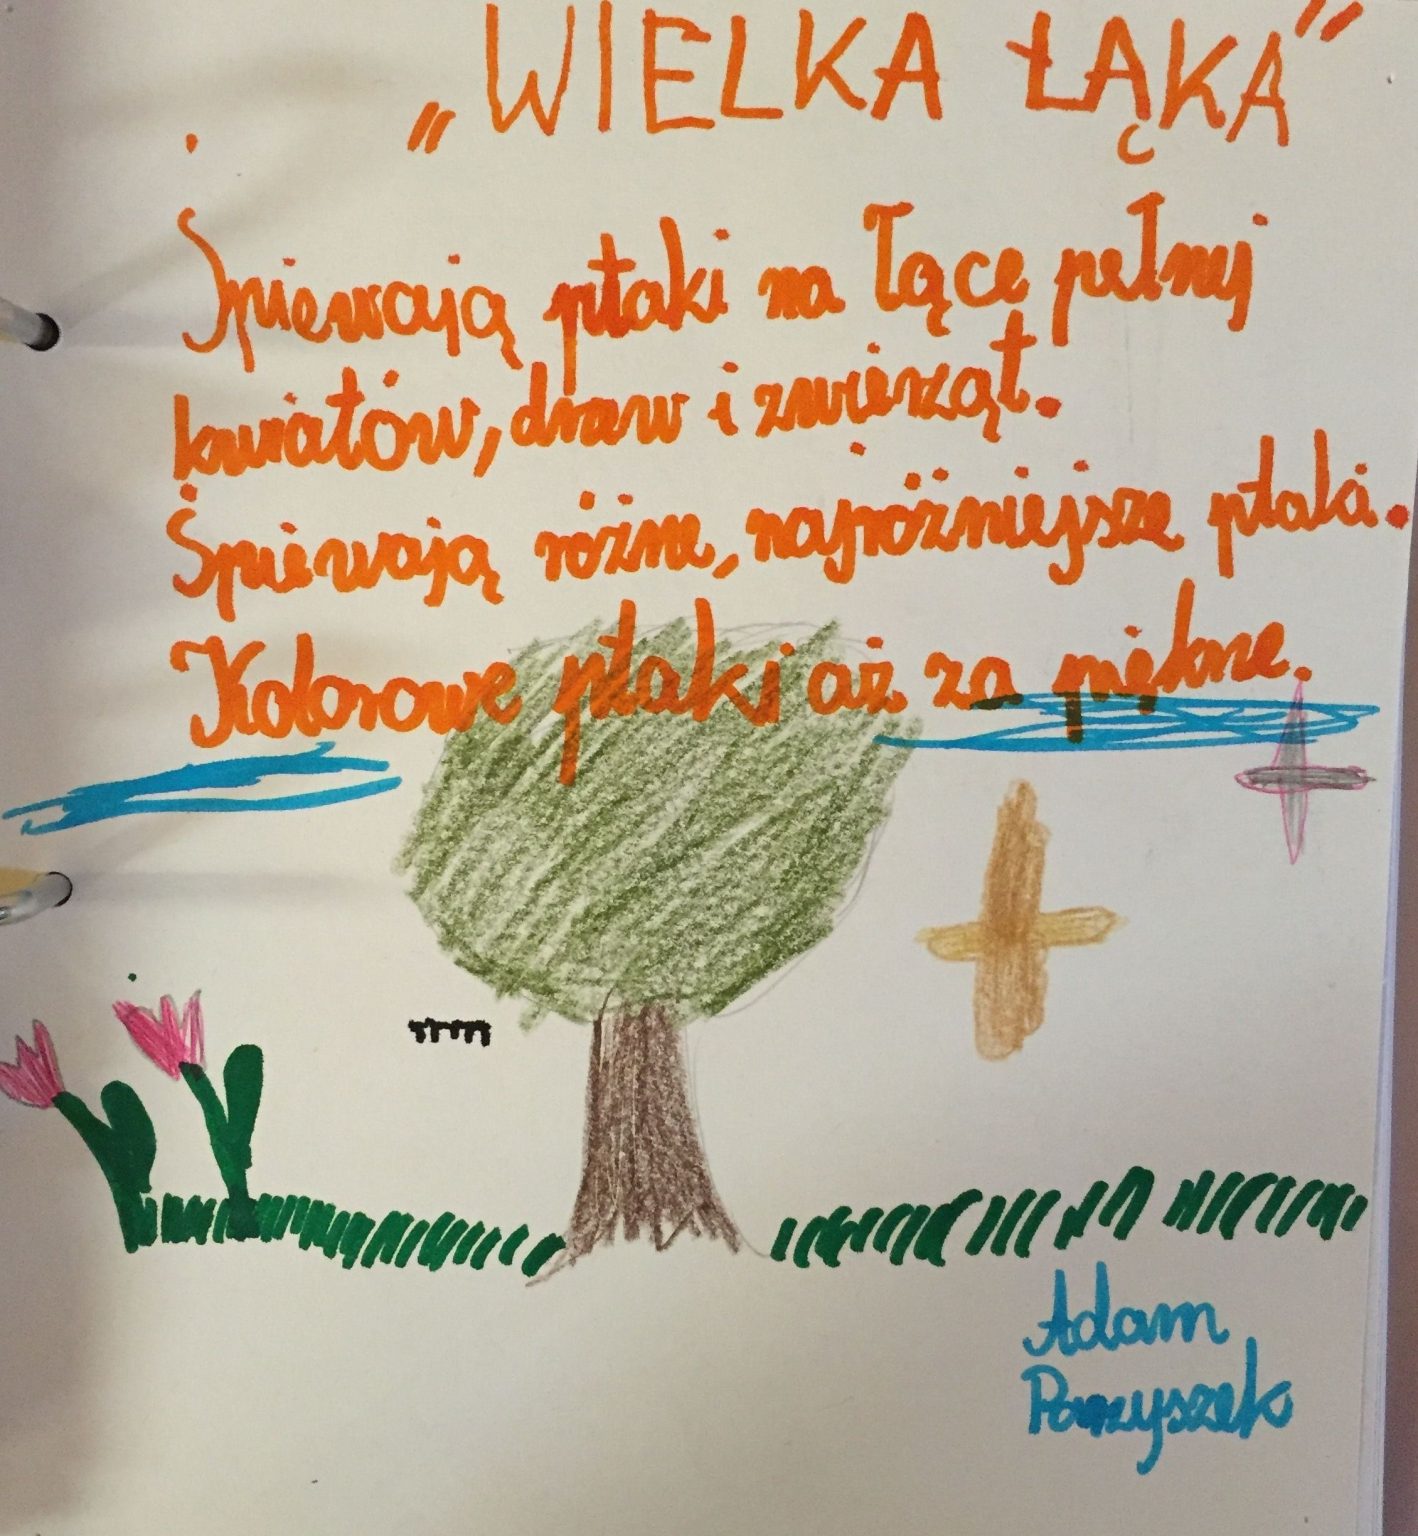 „WIELKA ŁĄKA”
Śpiewają ptaki na łące pełnej
kwiatów, drzew i zwierząt.
Śpiewają różne, najróżniejsze ptaki.
Kolorowe ptaki aż za piękne.
Adam
Parzyszek